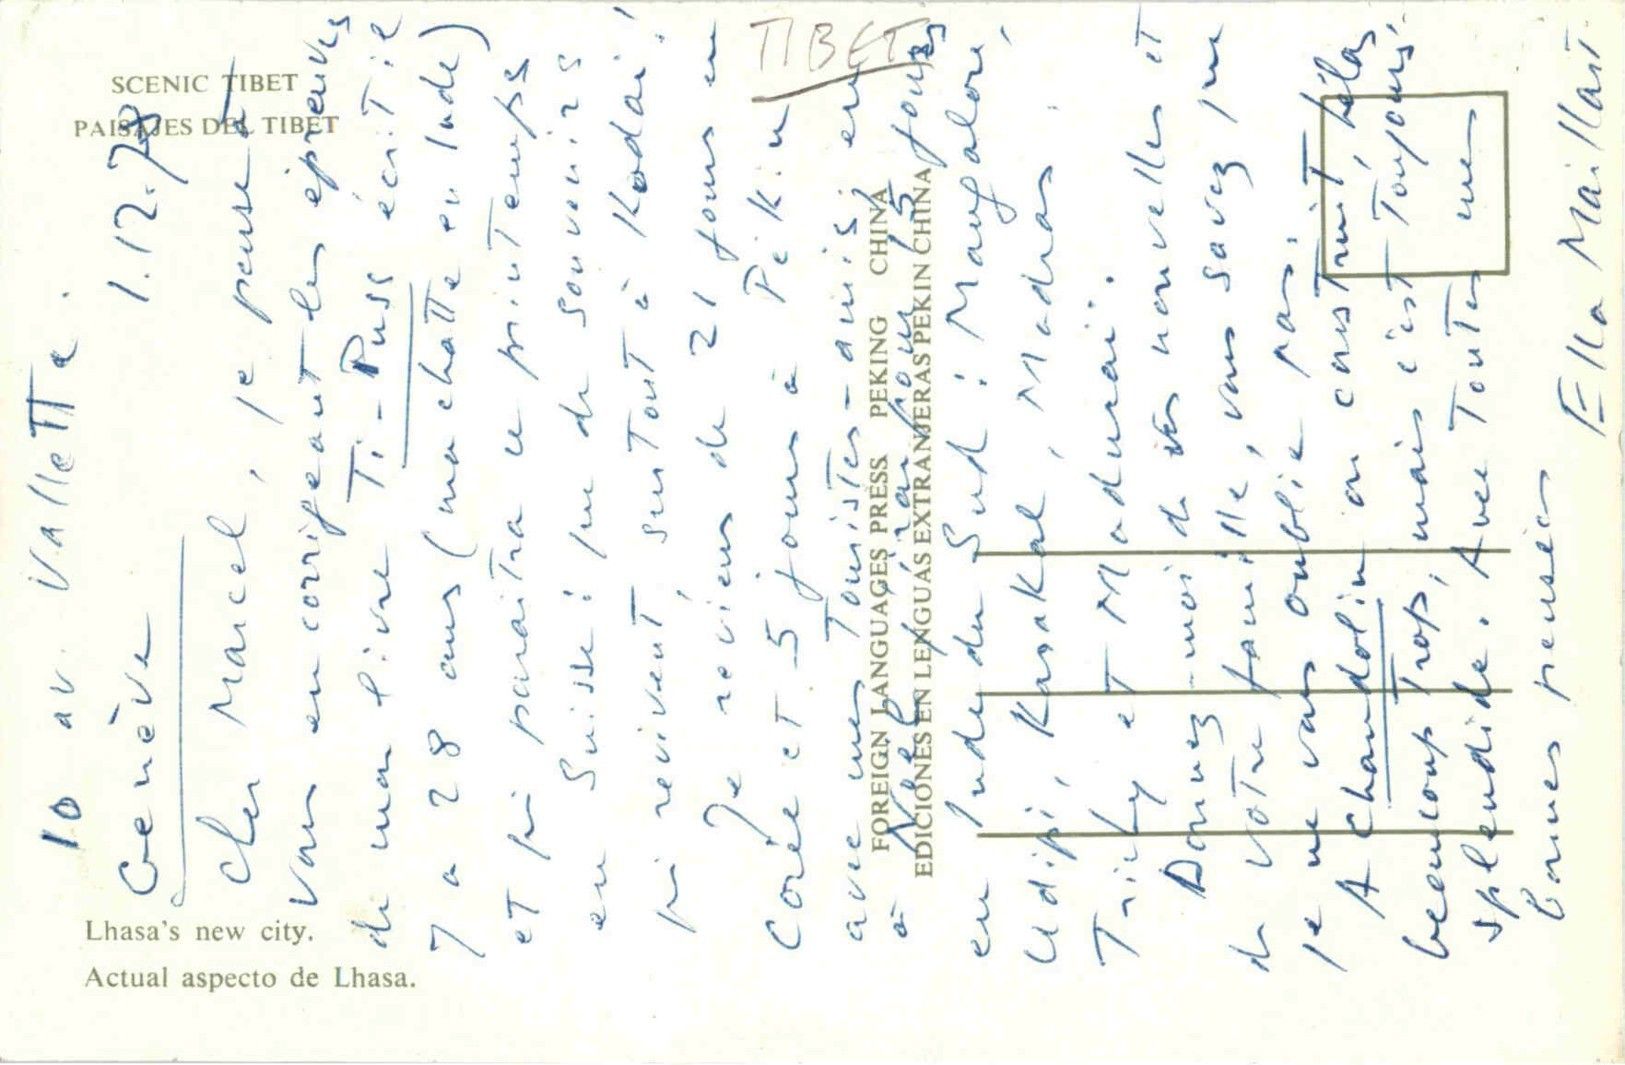 SCENIC TIBET
PAISAJES DEL TIBET
TIBET
10 av. Vallette.
Genève 1.12.78
Cher Marcel, je pense à
vous en corrigeant les épreuves
de mon livre Ti-Puss écrit il
y a 28 ans (ma chatte en Inde)
et qui paraîtra ce printemps
en Suisse: que de souvenirs
qui revivent, surtout à Kodai!
Je reviens de 21 jours en
Corée et 5 jours à Pékin
avec mes Touristes-amis; en
à Noël, irai pour 5 jours
en Inde du Sud: Mangalore,
Udipi, Karakal, Madras,
Trichy et Madurai.
Donnez-moi de vos nouvelles et
de votre famille, vous savez que
je ne vous oublie pas.
A Chandolin on construit, hélas
beaucoup trop, mais c'est toujours
splendide. Avec toutes mes
bonnes pensées
Ella Maillart.
FOREIGN LANGUAGES PRESS PEKING CHINA
EDICIONES EN LENGUAS EXTRANJERAS PEKIN CHINA
Lhasa's new city.
Actual aspecto de Lhasa.